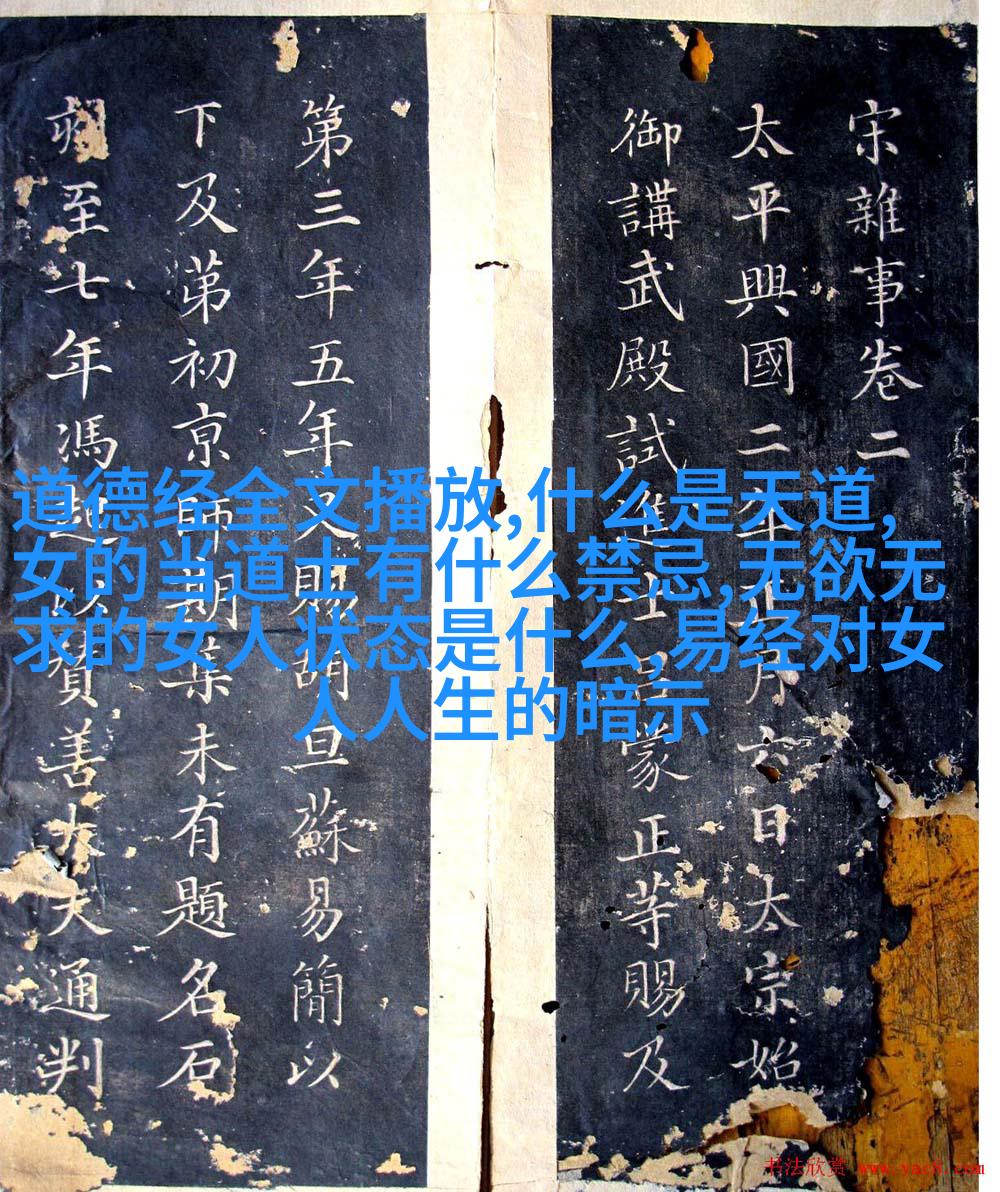 宋雜事卷二
太平興國二年正月六日太宗始
御講武殿試進士呂蒙正等賜及
第三年五年又賜胡旦蘇易簡以
下及苐初京師期集未有題名石
至七年馮起以賛善大夫通判
道德经全文播放,什么是天道,
女的当道士有什么禁忌,无欲无
求的女人状态是什么,易经对女
人人生的暗示
书法欣赏 www.yac8.com